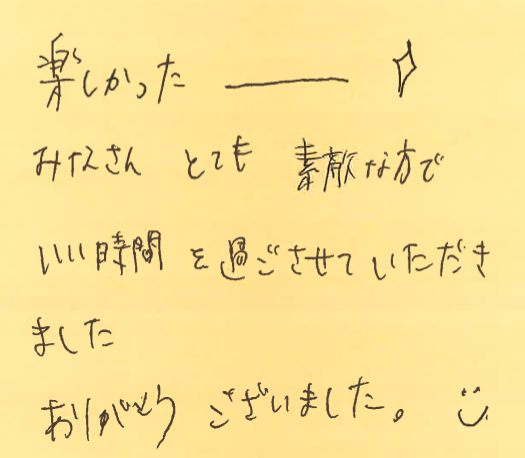 楽しかったーー
みなさん とても 素敵な方で
いい時間を過ごさせていただき
ました
ありがとう ございました。